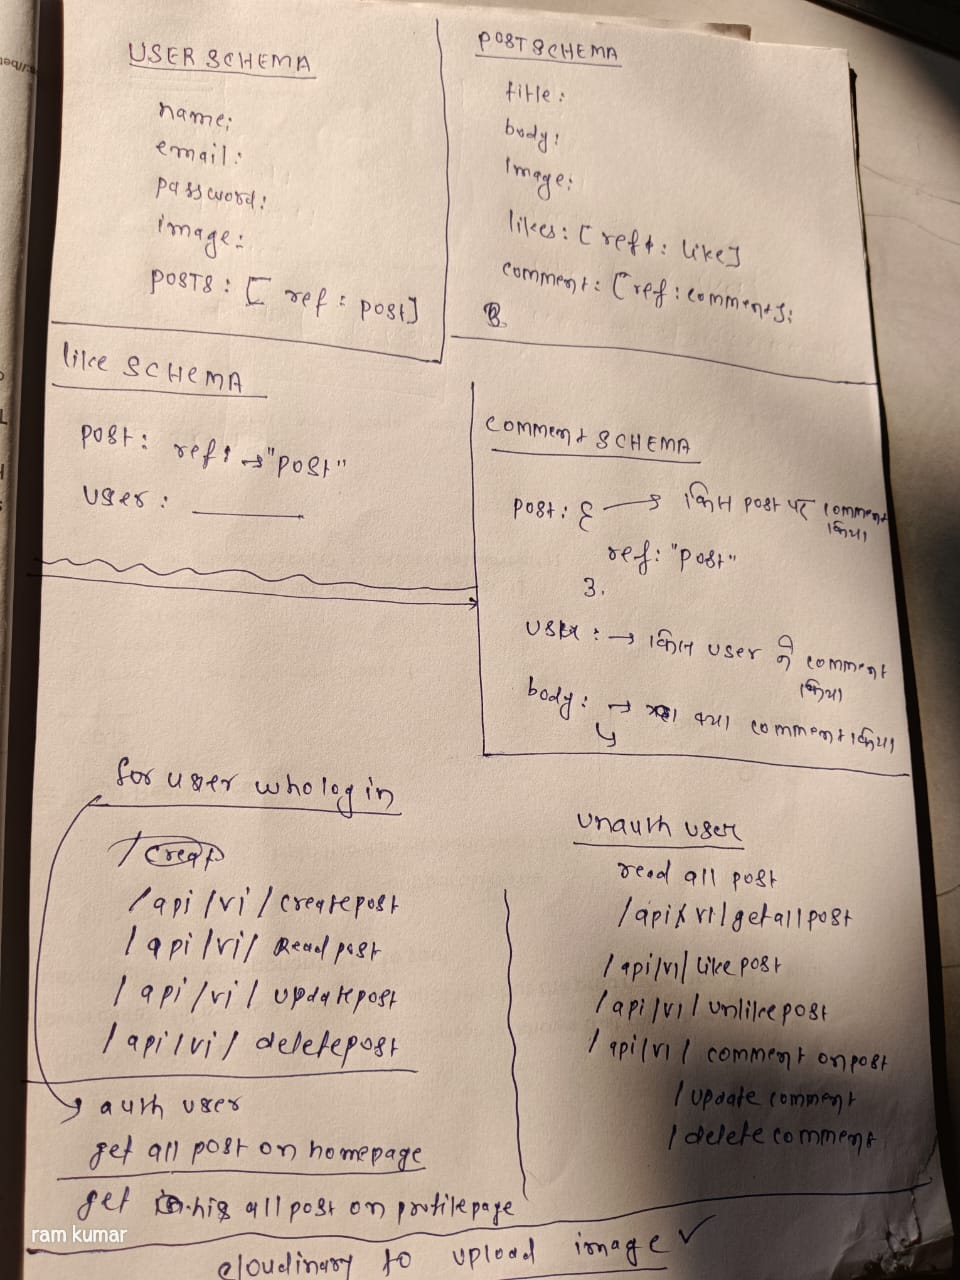 USER SCHEMA
name:
email:
password:
image:
POSTS: [ ref: post]
POST SCHEMA
title:
body:
Image:
likes: [ ref: like]
comment: [ref: comment];
like SCHEMA
post: ref: → "post"
user:
comment SCHEMA
post: { → किस post पर comment
किया
ref: "post"
}.
user: → किस user ने comment
किया
body: → क्या comment किया
for user who log in
/ creat
/api/v1/createpost
/api/v1/ Readpost
/api/v1/ updatepost
/api/v1/ deletepost
auth user
get all post on homepage
get his all post on profilepage
unauth user
read all post
/api/v1/getallpost
/api/v1/ like post
/api/v1/ unlike post
/api/v1/ comment on post
/ update comment
/ delete comment
cloudinary to upload image ✓
ram kumar